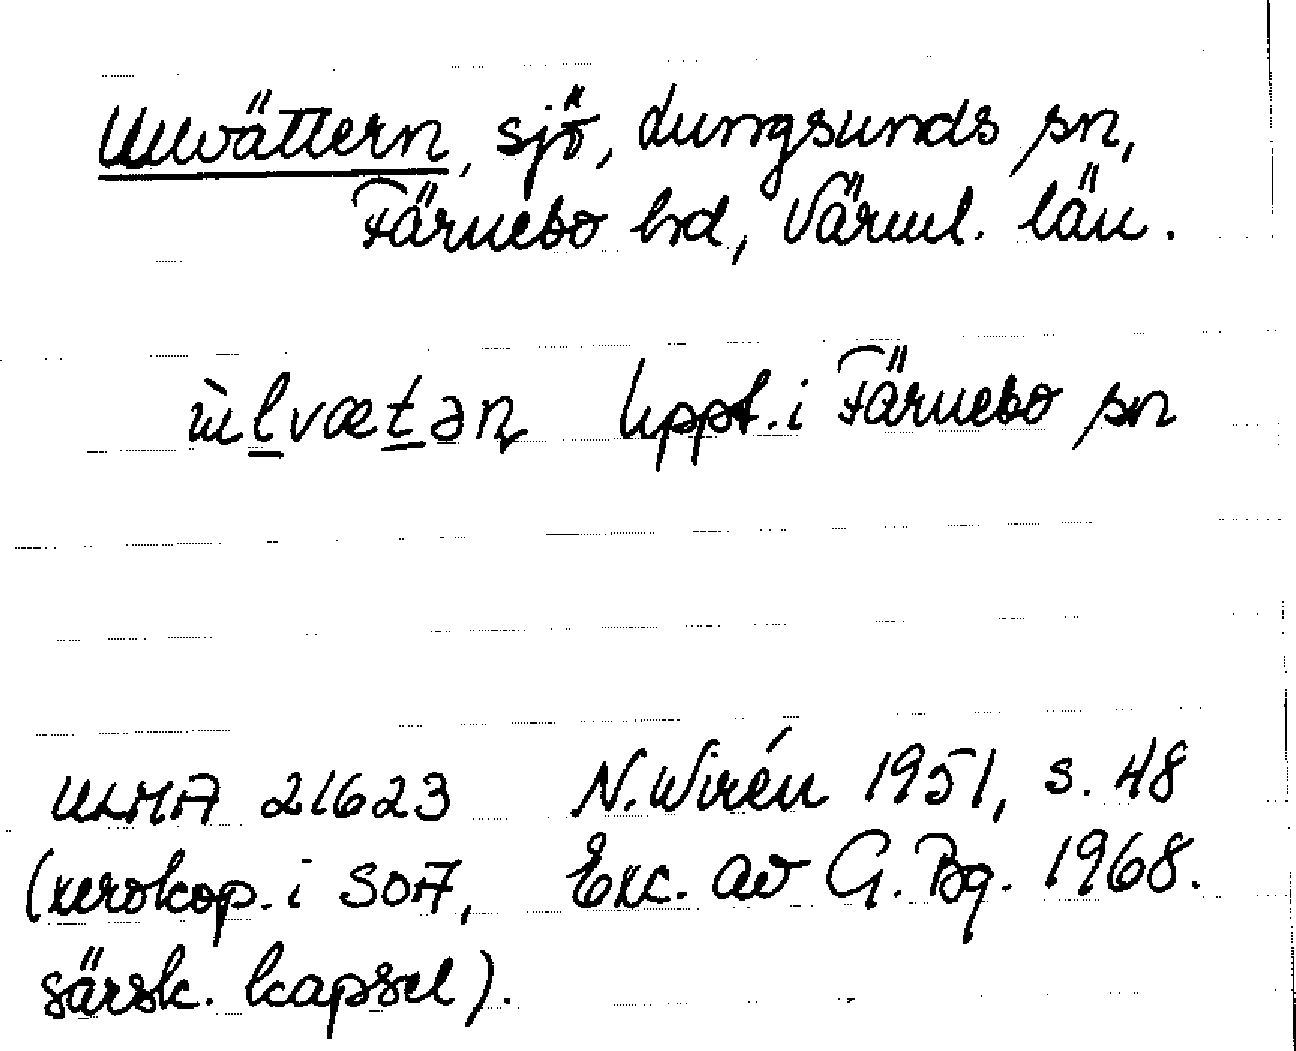 Ullvättern, sjö, Lungsunds sn,
Färnebo hd, Värml. län.
ùlvætəɳ uppt. i Färnebo sn
ULMA 21623 N. Wirén 1951, s. 48
(xerokop. i SOA, Exc. av G. Bg. 1968.
särsk. kapsel).